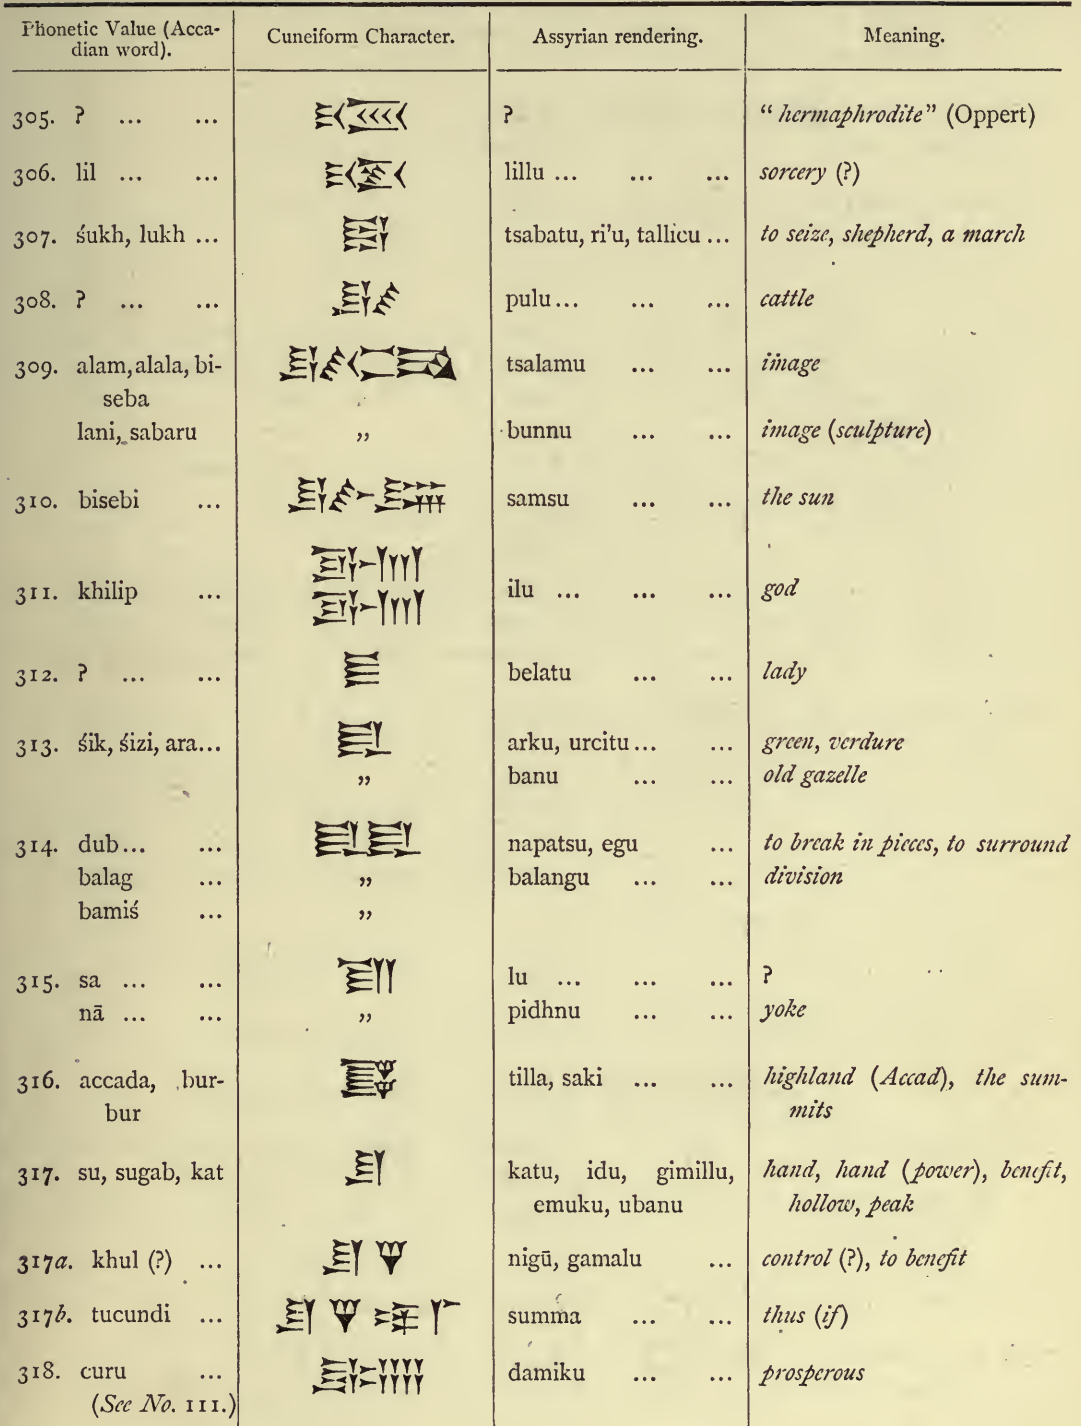 Phonetic Value (Acca- Cuneiform Character. Assyrian rendering. Meaning.
dian word).
305. ? ... ... ? "hermaphrodite" (Oppert)
306. lil ... ... lillu ... ... ... sorcery (?)
307. śukh, lukh ... tsabatu, ri'u, tallicu ... to seize, shepherd, a march
308. ? ... ... pulu ... ... ... cattle
309. alam, alala, bi- tsalamu ... ... image
seba
lani, sabaru ,, bunnu ... ... image (sculpture)
310. bisebi ... samsu ... ... the sun
311. khilip ... ilu ... ... ... god
312. ? ... ... belatu ... ... lady
313. śik, śizi, ara... arku, urcitu ... ... green, verdure
,, banu ... ... old gazelle
314. dub ... ... napatsu, egu ... to break in pieces, to surround
balag ... ,, balangu ... ... division
bamiś ... ,,
315. sa ... ... lu ... ... ... ?
nā ... ... ,, pidhnu ... ... yoke
316. accada, bur- tilla, saki ... ... highland (Accad), the sum-
bur mits
317. su, sugab, kat katu, idu, gimillu, hand, hand (power), benefit,
emuku, ubanu hollow, peak
317a. khul (?) ... nigū, gamalu ... control (?), to benefit
317b. tucundi ... summa ... ... thus (if)
318. curu ... damiku ... ... prosperous
(See No. 111.)